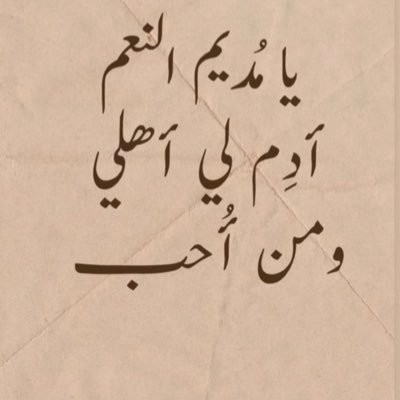 يا مُديم النعم
أدِم لي أهلي
ومن أُحب